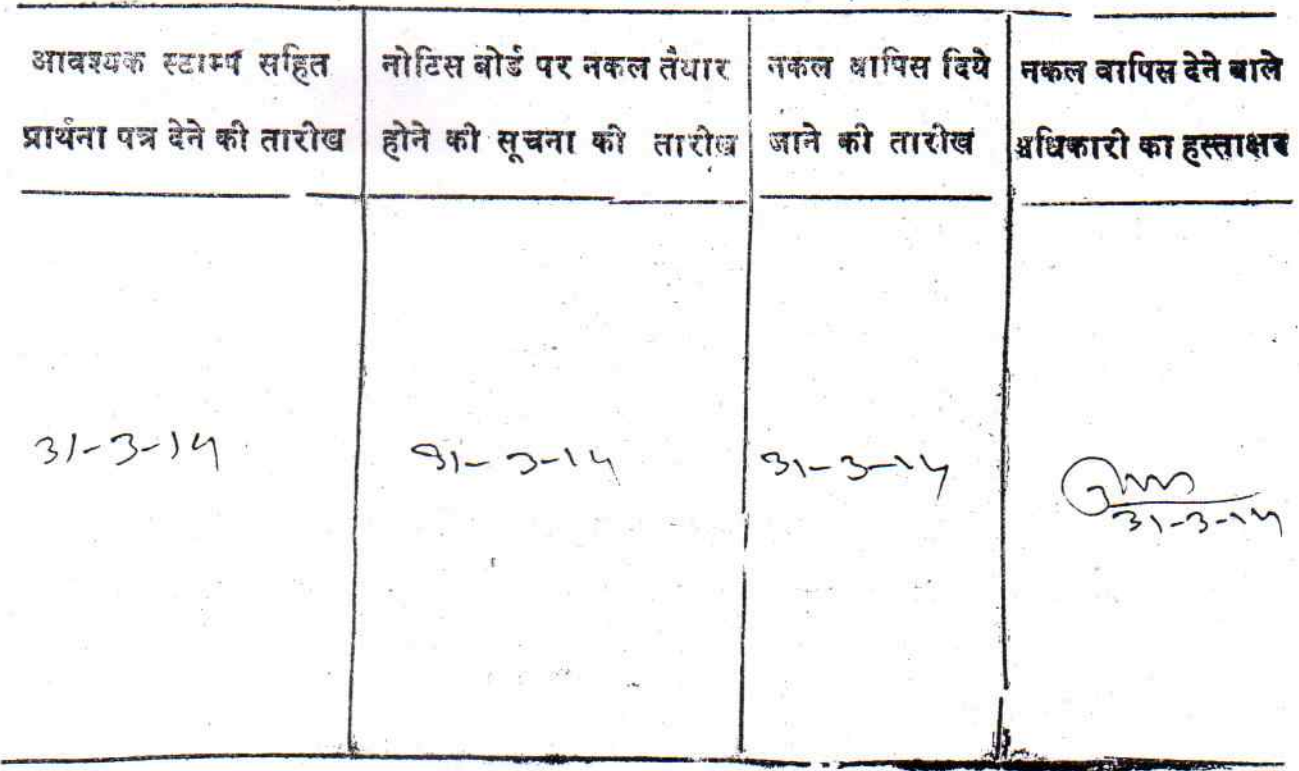 आवश्यक स्टाम्प सहित
प्रार्थना पत्र देने की तारीख
नोटिस बोर्ड पर नकल तैयार
होने की सूचना की तारीख
नकल वापिस दिये
जाने की तारीख
नकल वापिस देने वाले
अधिकारी का हस्ताक्षर
31-3-14
31-3-14
31-3-14
31-3-14